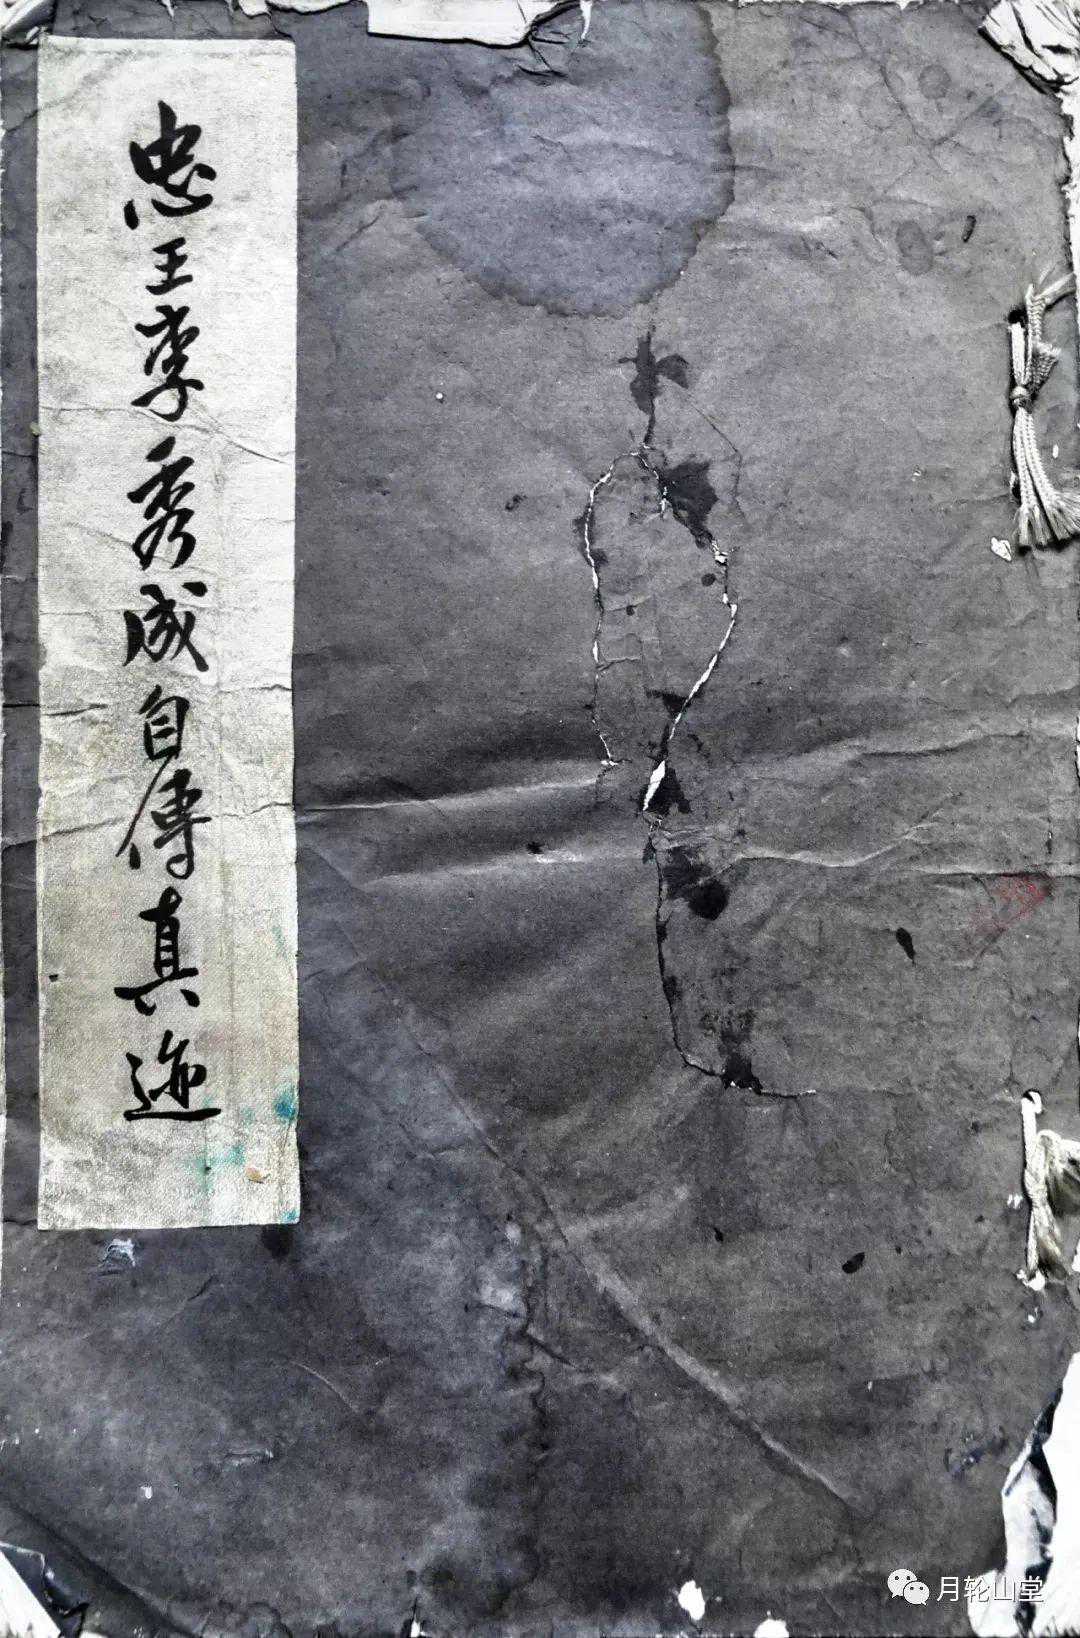 忠王李秀成自傳真迹
月轮山堂